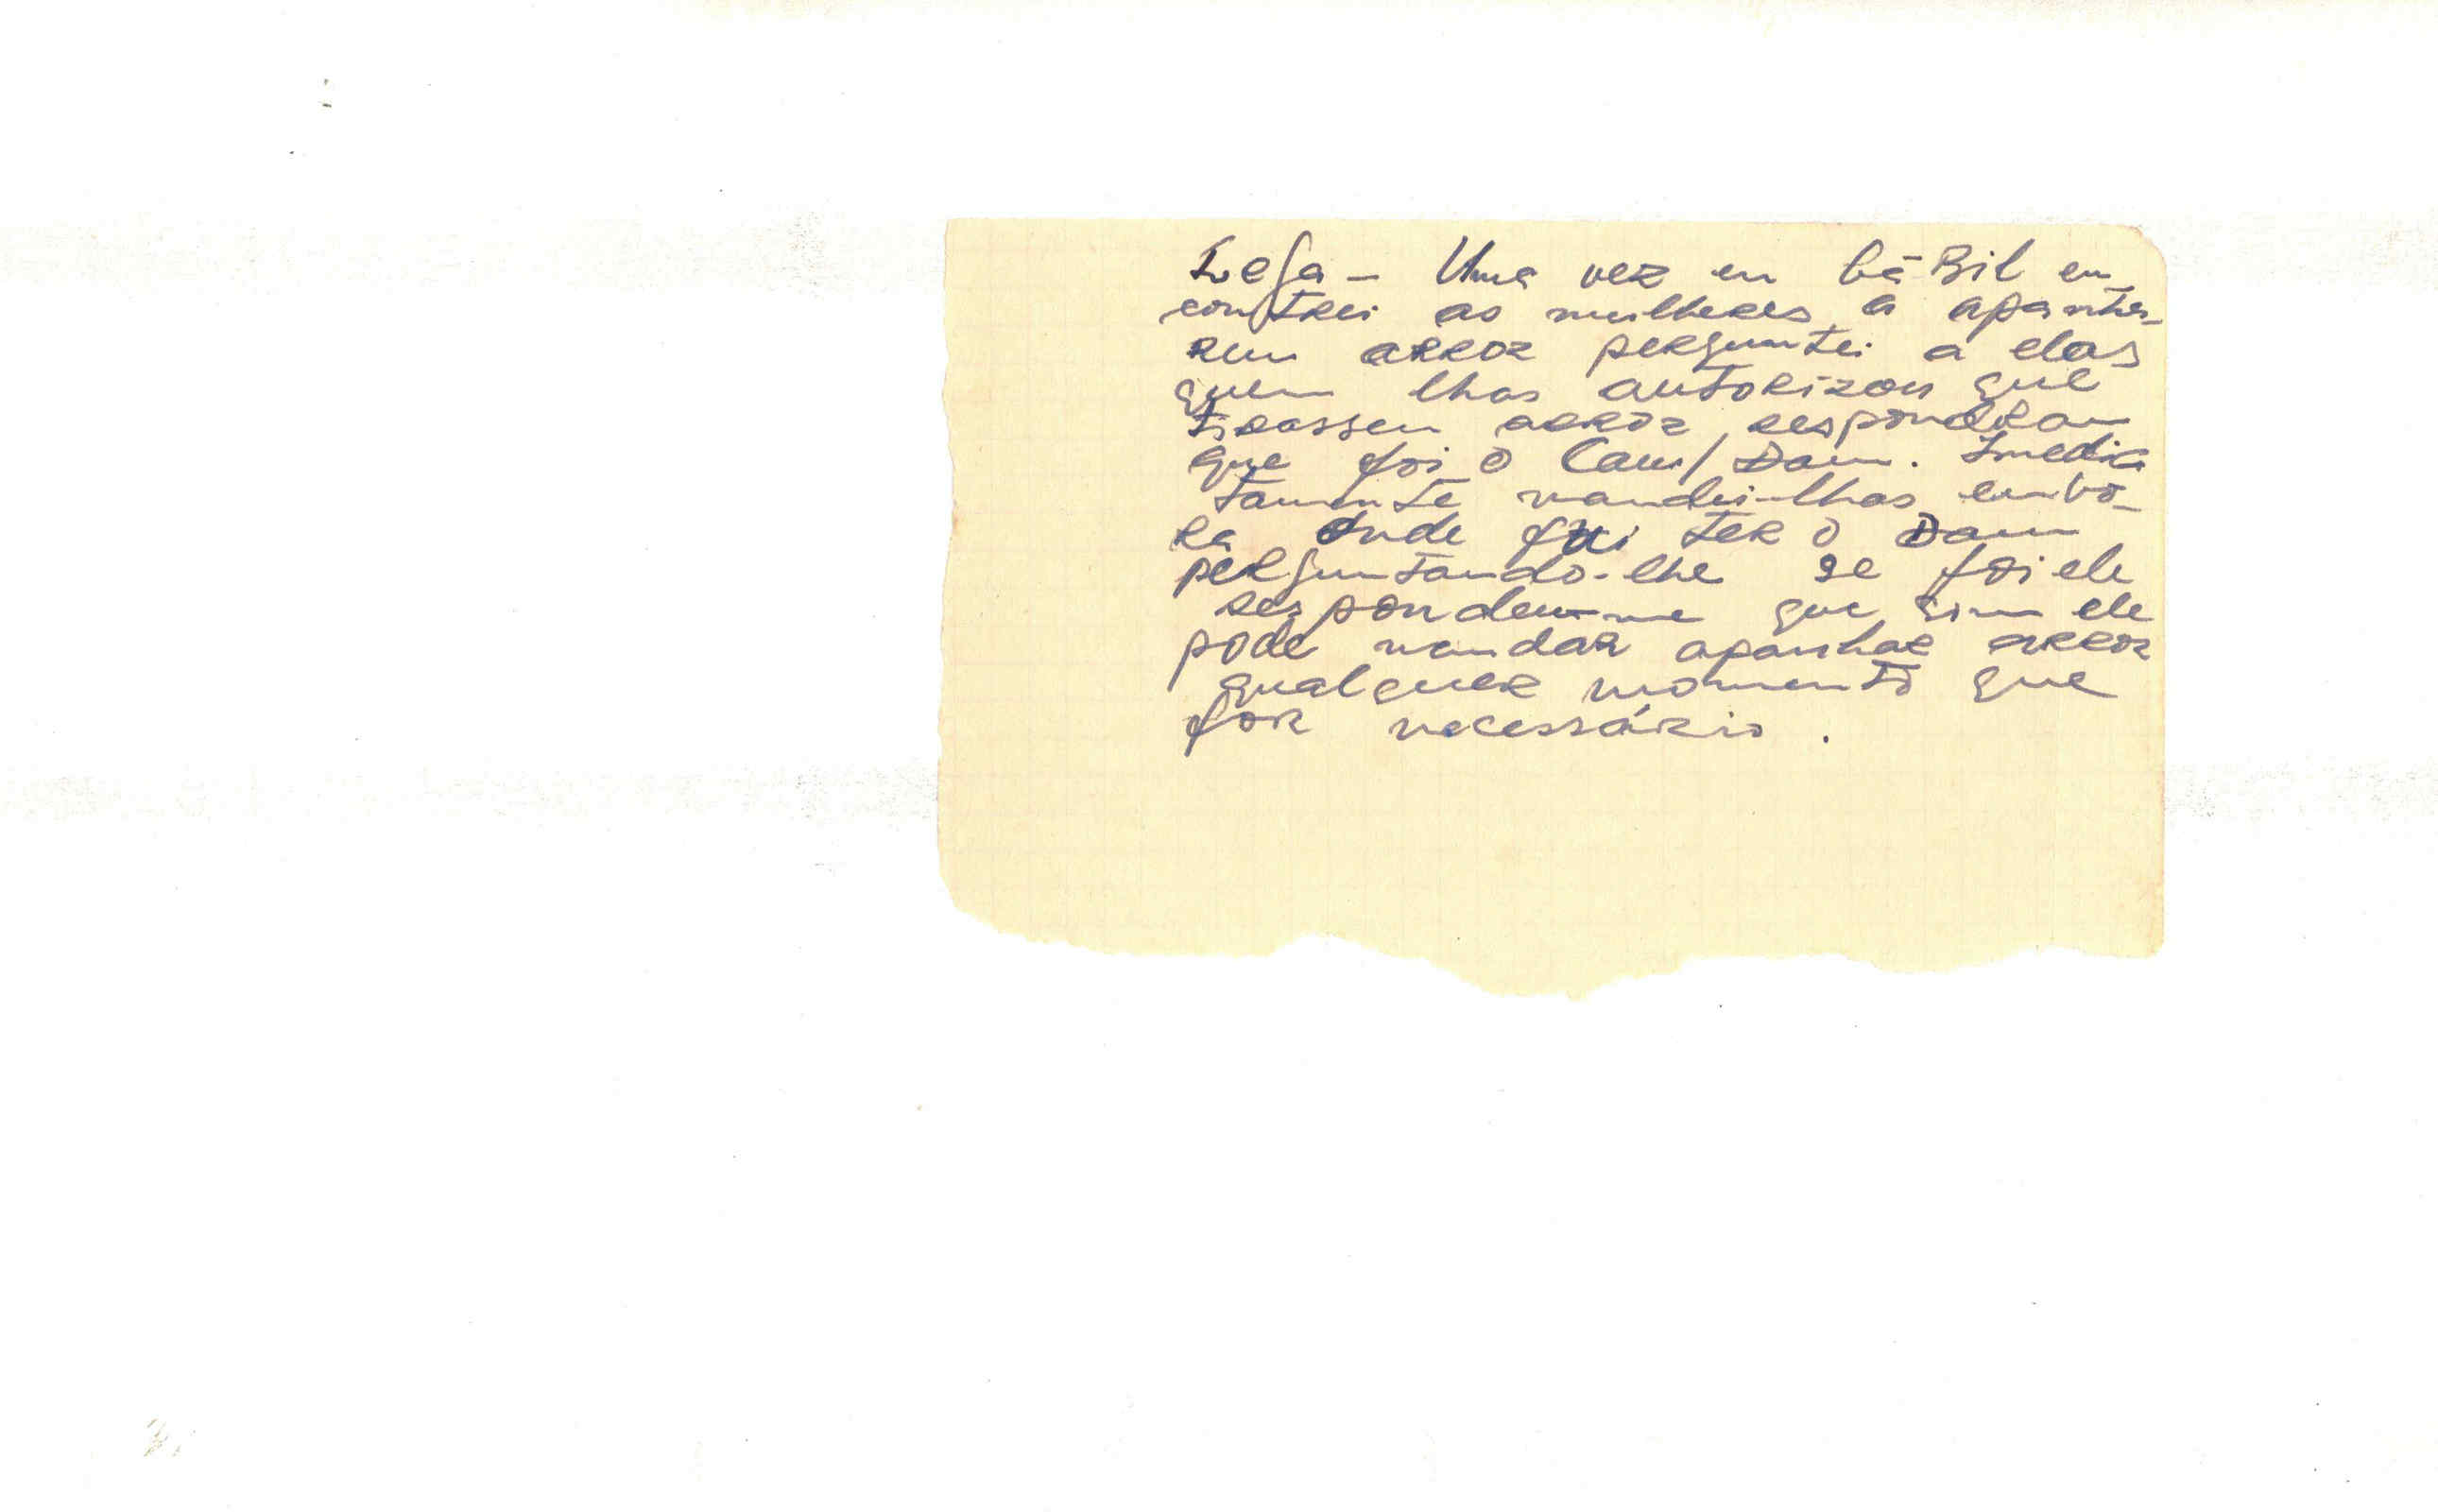 Lega - Uma vez em Cá Bil en_
contrei as mulheres a apanha_
rem arroz perguntei a elas
quem lhas autorizou que
tirassem arroz, responderam
que foi o Cam/ Dam. Imedia
tamente mandei-lhas embo_
ra onde fui ter o Dam
perguntando-lhe se foi ele
respondeu-me que sim ele
pode mandar apanhar arroz
qualquer momento que
for necessário.